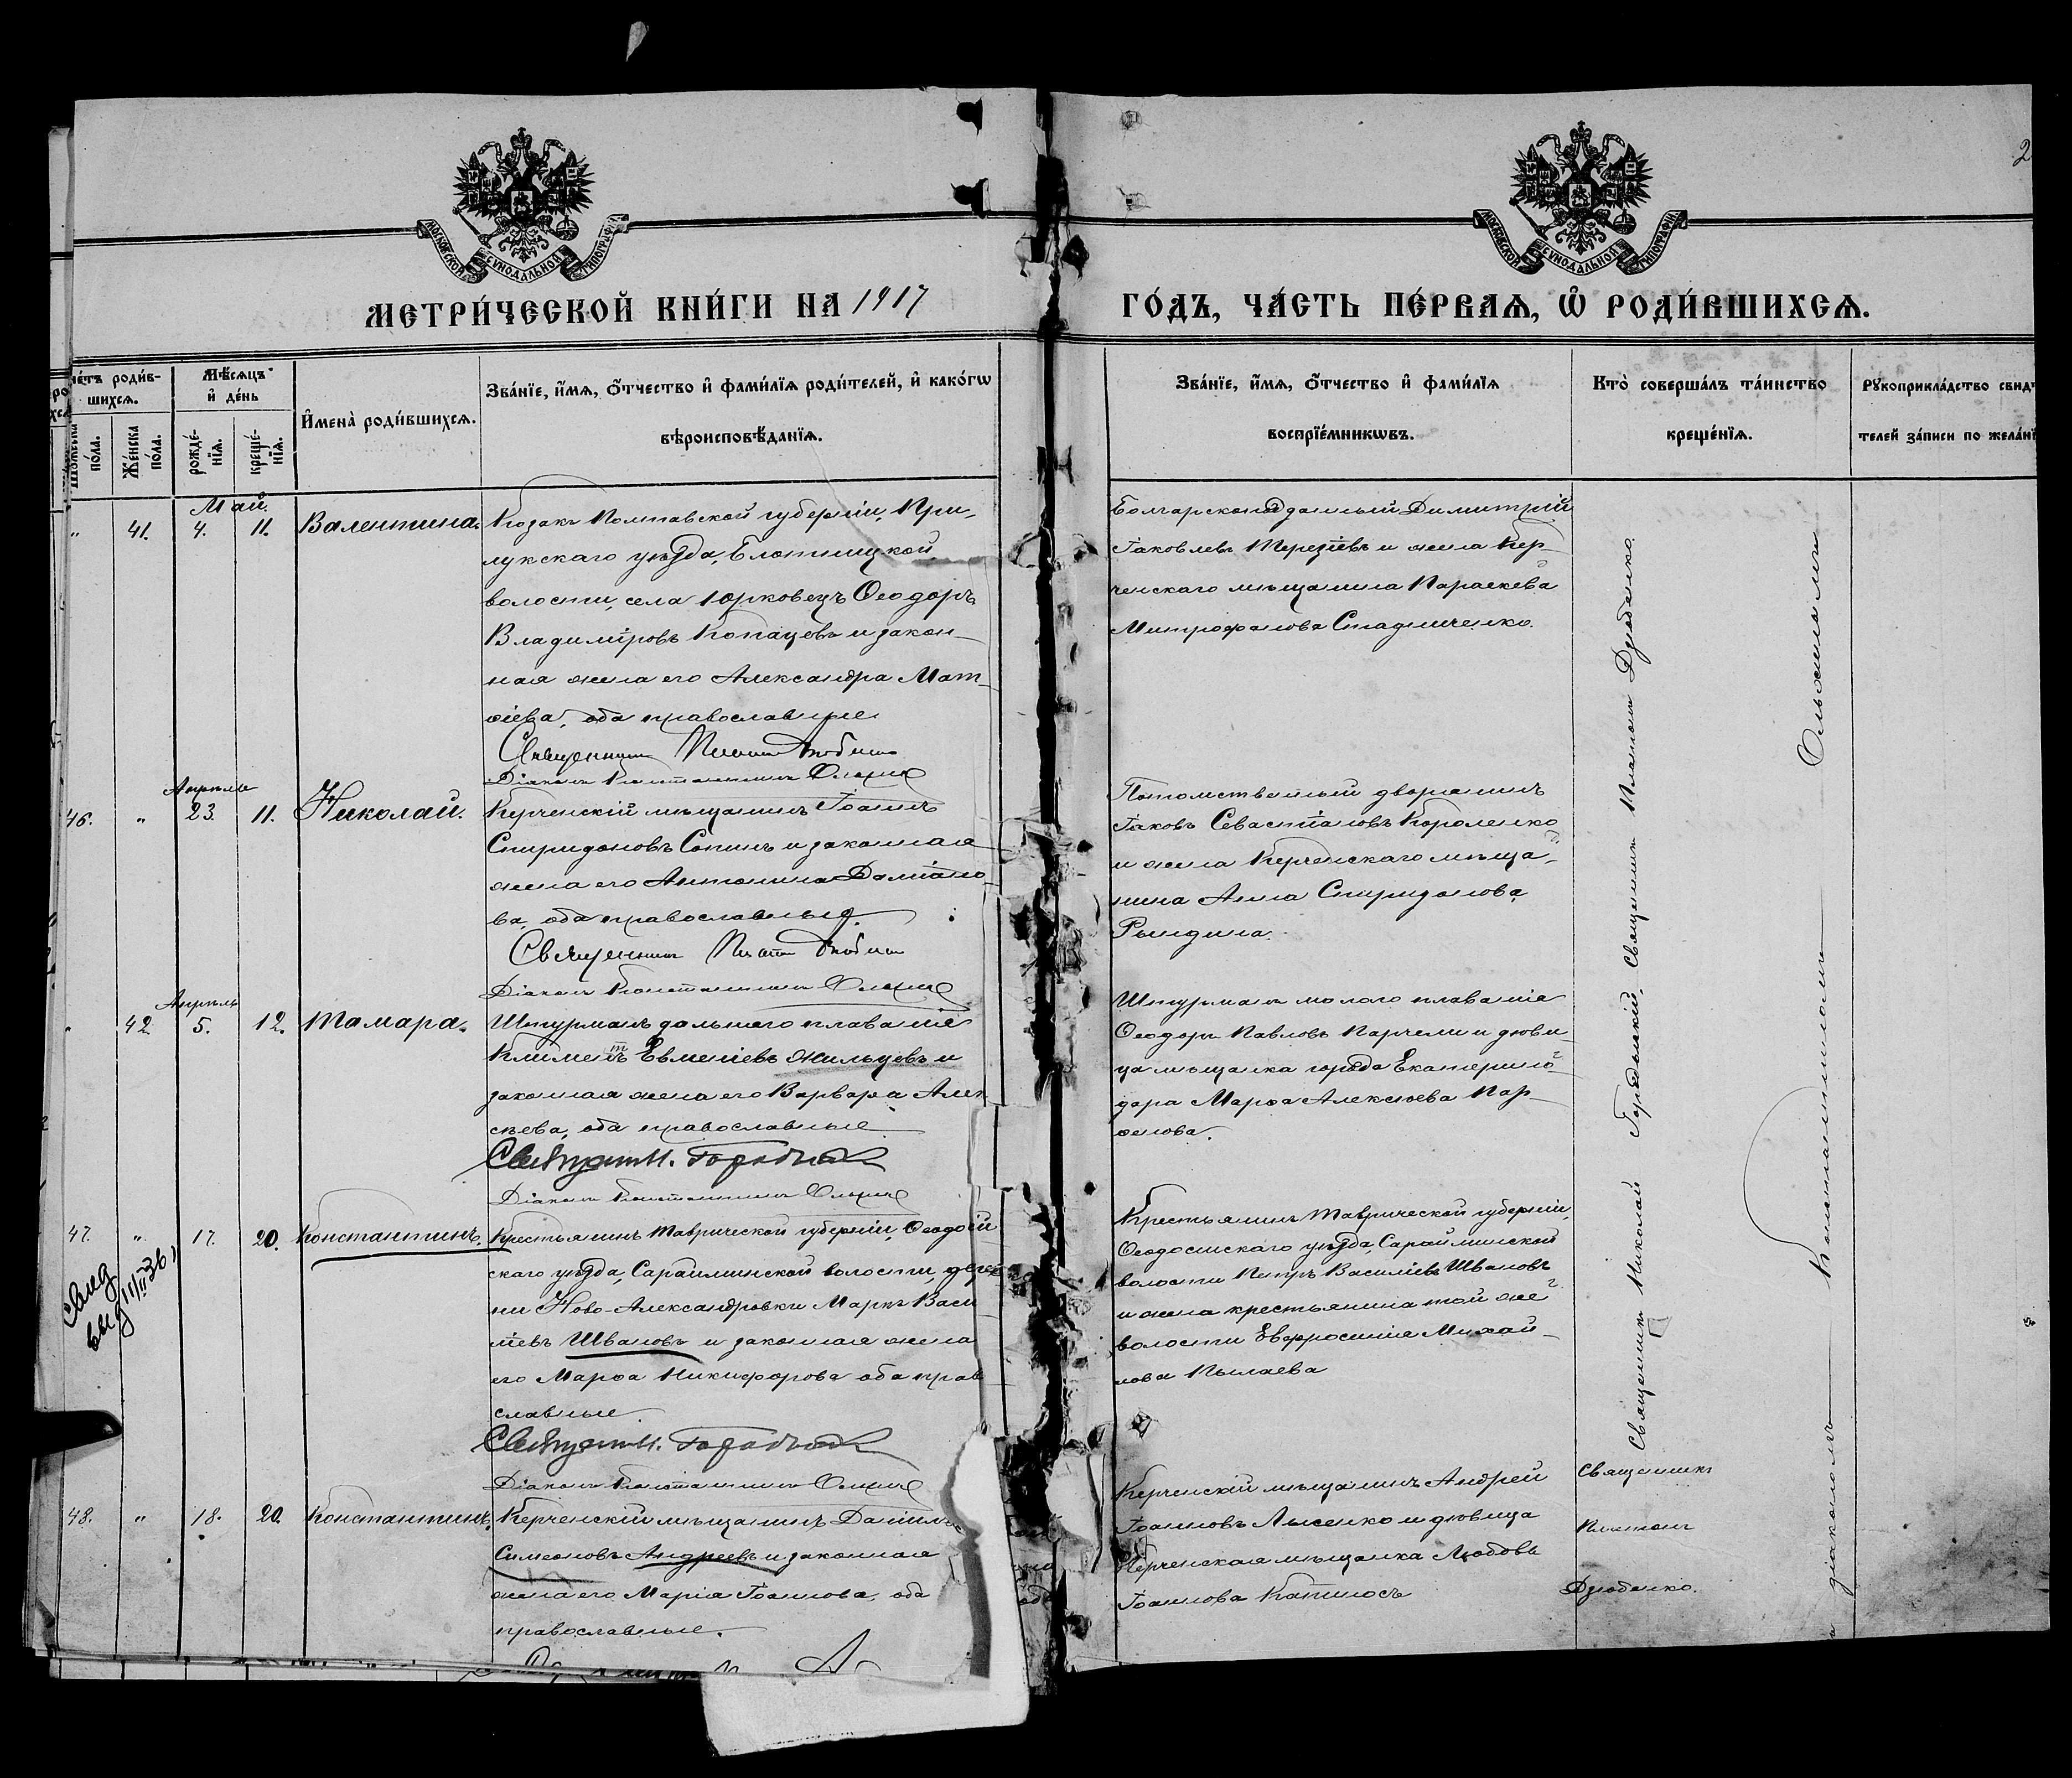 2
МОСКОВСКОЙ СУНОДАЛЬНОЙ ТИПОГРАФІИ
МОСКОВСКОЙ СУНОДАЛЬНОЙ ТИПОГРАФІИ
МЕТРИ́ЧЕСКОЙ КНИ́ГИ НА 1917
ГО́ДЪ, ЧА́СТЬ ПЕ́РВАѦ, Ѡ҆ РОДИ́ВШИХСѦ.
че́тъ роди́в-
шихсѧ.
пола.
Же́нска
по́ла.
Мѣ́сѧцъ
и҆ де́нь
рожде́-
нїѧ.
креще́-
нїѧ.
И҆мена̀ роди́вшихсѧ.
Зва́нїе, и҆́мѧ, ѻ҆́тчество и҆ фами́лїѧ роди́телей, и҆ како́гѡ
вѣроисповѣ́данїѧ.
Зва́нїе, и҆́мѧ, ѻ҆́тчество и҆ фами́лїѧ
воспрїе́мникѡвъ.
Кто̀ соверша́лъ та́инство
креще́нїѧ.
Рꙋкоприкла́дство свидѣ́
телей за́писи по жела́нї
Май.
" 41. 4. 11. Валентина.
Козакъ Полтавской губерніи, При-
лукскаго уѣзда,
волости, села Юрковецъ Ѳеодоръ
Владиміровъ Копацевъ и закон-
ная жена его Александра Мат-
ѳіева, оба православные
Священникъ Платонъ Дзюбенко
Діаконъ Константинъ
Болгарскоподданный Димитрій
Іаковлевъ Терезіевъ и жена Кер-
ченскаго мѣщанина Параскева
Митрофанова Стадниченко.
Апрѣль
46. " 23. 11. Николай.
Керченскій мѣщанинъ Іоаннъ
Спиридоновъ Сопинъ и законная
жена его Антонина Даміано-
ва, оба православные.
Священникъ Платонъ Дзюбенко
Діаконъ Константинъ
Потомственный дворянинъ
Іаковъ Севастіановъ Короленко
и жена Керченскаго мѣща-
нина Анна Спиридонова
Рындина.
Апрѣль
42. 5. 12. Тамара.
Штурманъ дальняго плаванія
Климентъ Евменіевъ Жильцовъ и
законная жена его Варвара Алек
сѣева, оба православные
Священникъ Н.
Діаконъ Константинъ
Штурманъ малаго плаванія
Ѳеодоръ Павловъ Парчели и дѣви-
ца мѣщанка города Екатерино-
дара Марѳа Алексѣева Пар-
ѳенова.
47. " 17. 20. Константинъ.
свид
выд 11/II 36
Крестьянинъ Таврической губерніи, Ѳеодосій
скаго уѣзда, Сарайминской волости, дерев
ни Ново-Александровки Маркъ Васи
ліевъ Швановъ и законная жена
его Марѳа Никифорова оба прав
славные.
Священникъ Н.
Діаконъ Константинъ
Крестьянинъ Таврической губерніи,
Ѳеодосійскаго уѣзда, Сарайминской
волости Петръ Василіевъ Швановъ
и жена крестьянина той же
волости Евфросинія Михай-
лова Пылаева
48. " 18. 20. Константинъ.
Керченскій мѣщанинъ Даніилъ
Симеоновъ Андреевъ и законная
жена его Марія Іоаннова, оба
православные.
Керченскій мѣщанинъ Андрей
Іоанновъ Лысенко и дѣвица
Керченская мѣщанка Любовь
Іоаннова
Священникъ
Платонъ
Дзюбенко.
Священникъ Николай Священникъ Платонъ Дзюбенко.
діакономъ Константиномъ